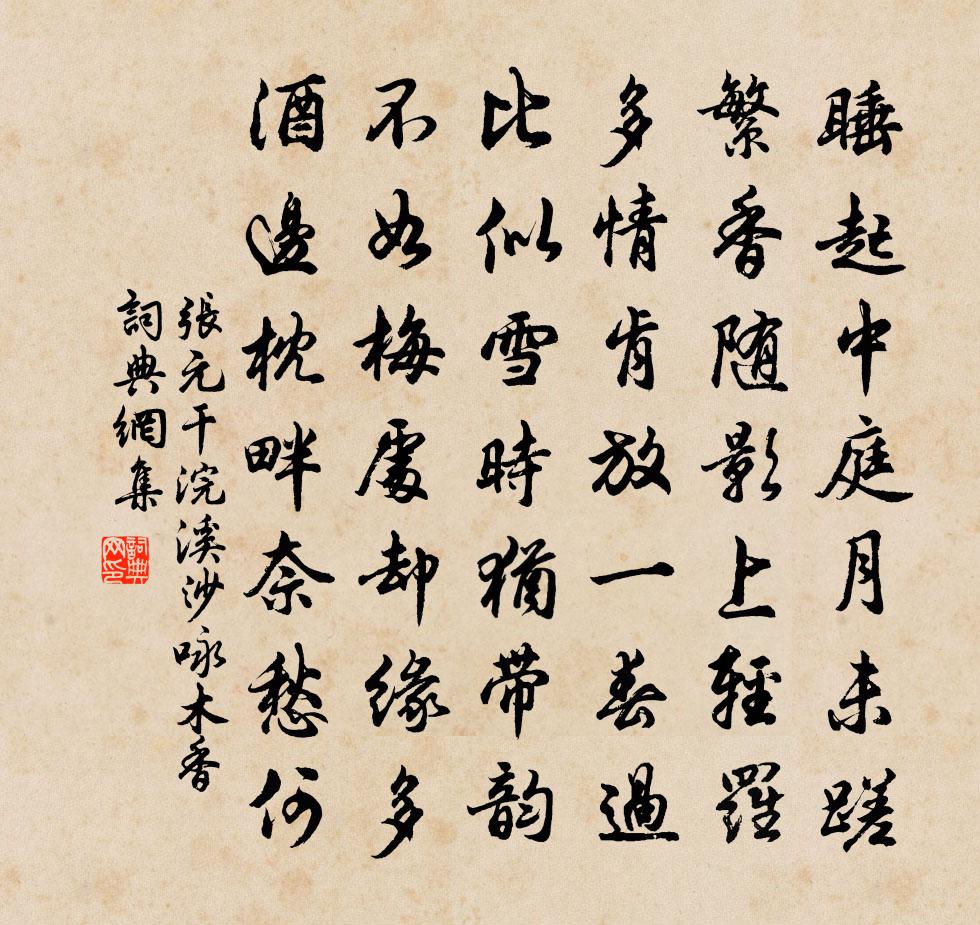 睡起中庭月未蹉
繁香随影上輕羅
多情肯放一春過
比似雪時猶带韵
不如梅處却緣多
酒邊枕畔奈愁何
張元干浣溪沙咏木香
詞典網集
詞典网印